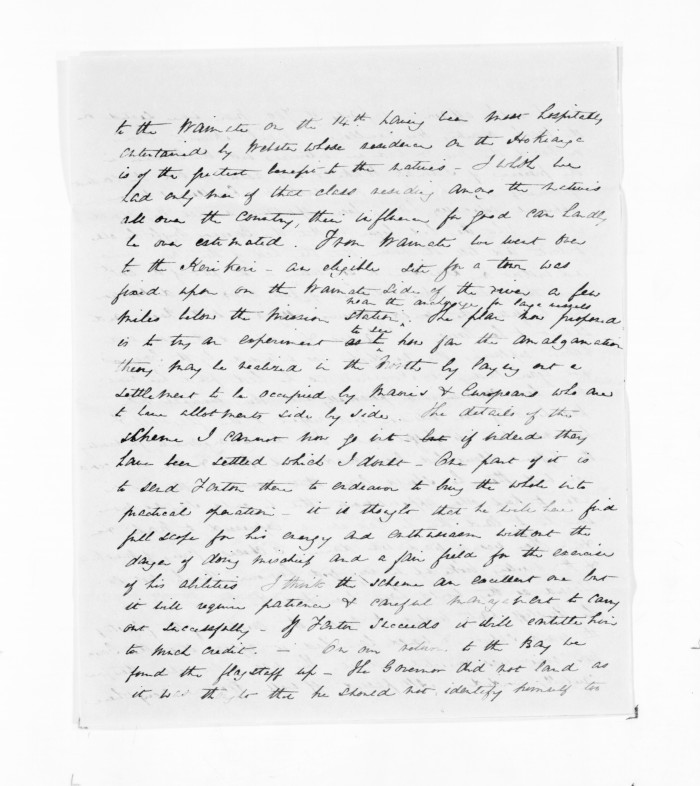 to the Waimate on the 14th having been most hospitably
entertained by Webster whose residence on the Hokianga
is of the greatest benefit to the natives - I wish we
had only men of that class residing among the natives
all over the Country, their influence for good can hardly
be over estimated. From Waimate we went over
to the Keri Keri - an eligible site for a town was
fixed upon on the Waimate side of the river a few
near the anchorage for large vessels
miles below the Mission station. The plan now proposed
to see
is to try an experiment as to how far the amalgamation
theory may be realized in the North by laying out a
settlement to be occupied by Maoris & Europeans who are
to have allotments side by side. The details of the
scheme I cannot now go into - but if indeed they
have been settled which I doubt - One part of it is
to send Fenton there to endeavor to bring the whole into
practical operation - it is thought that he will here find
full scope for his energy and enthusiasm without the
danger of doing mischief and a fair field for the exercise
of his abilities I think the scheme an excellent one but
it will require patience & careful management to carry
out successfully - If Fenton succeeds it will entitle him
to much credit. - On our return to the Bay we
found the flagstaff up - The Governor did not land as
it was that he should not identify himself too